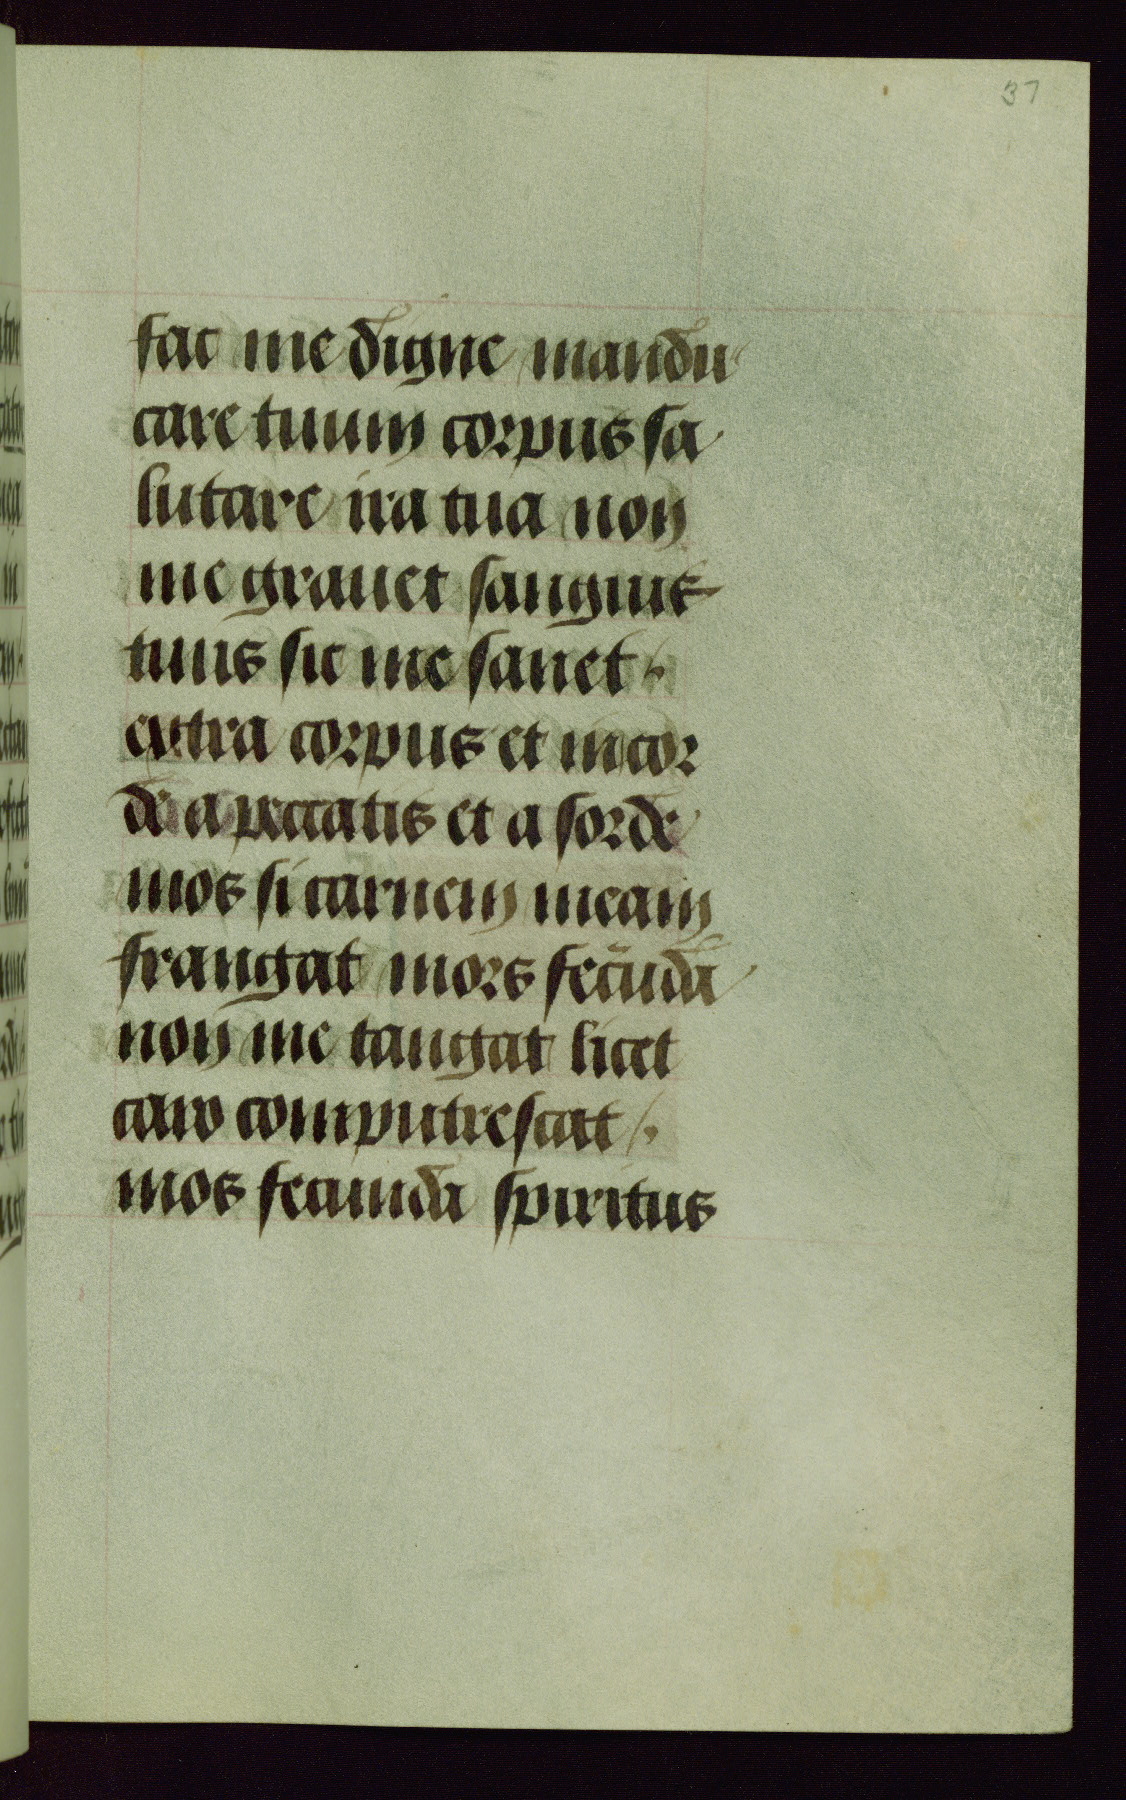 37
fac me digne mandu
care tuum corpus sa
lutare ira tua non
me grauet sanguis
tuus sic me sanet.
extra corpus et in cor
de a peccatis et a sorde
mos si carnem meam
frangat mors secūda
non me tangat licet
caro computrescat.
mos secunda spiritus